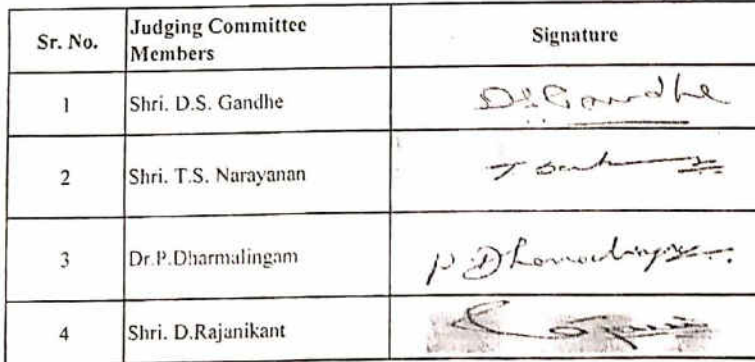 Sr. No. Judging Committee Members Signature
1 Shri. D.S. Gandhe D.S. Gandhe
2 Shri. T.S. Narayanan
3 Dr.P.Dharmalingam P. Dharmalingam
4 Shri. D.Rajanikant